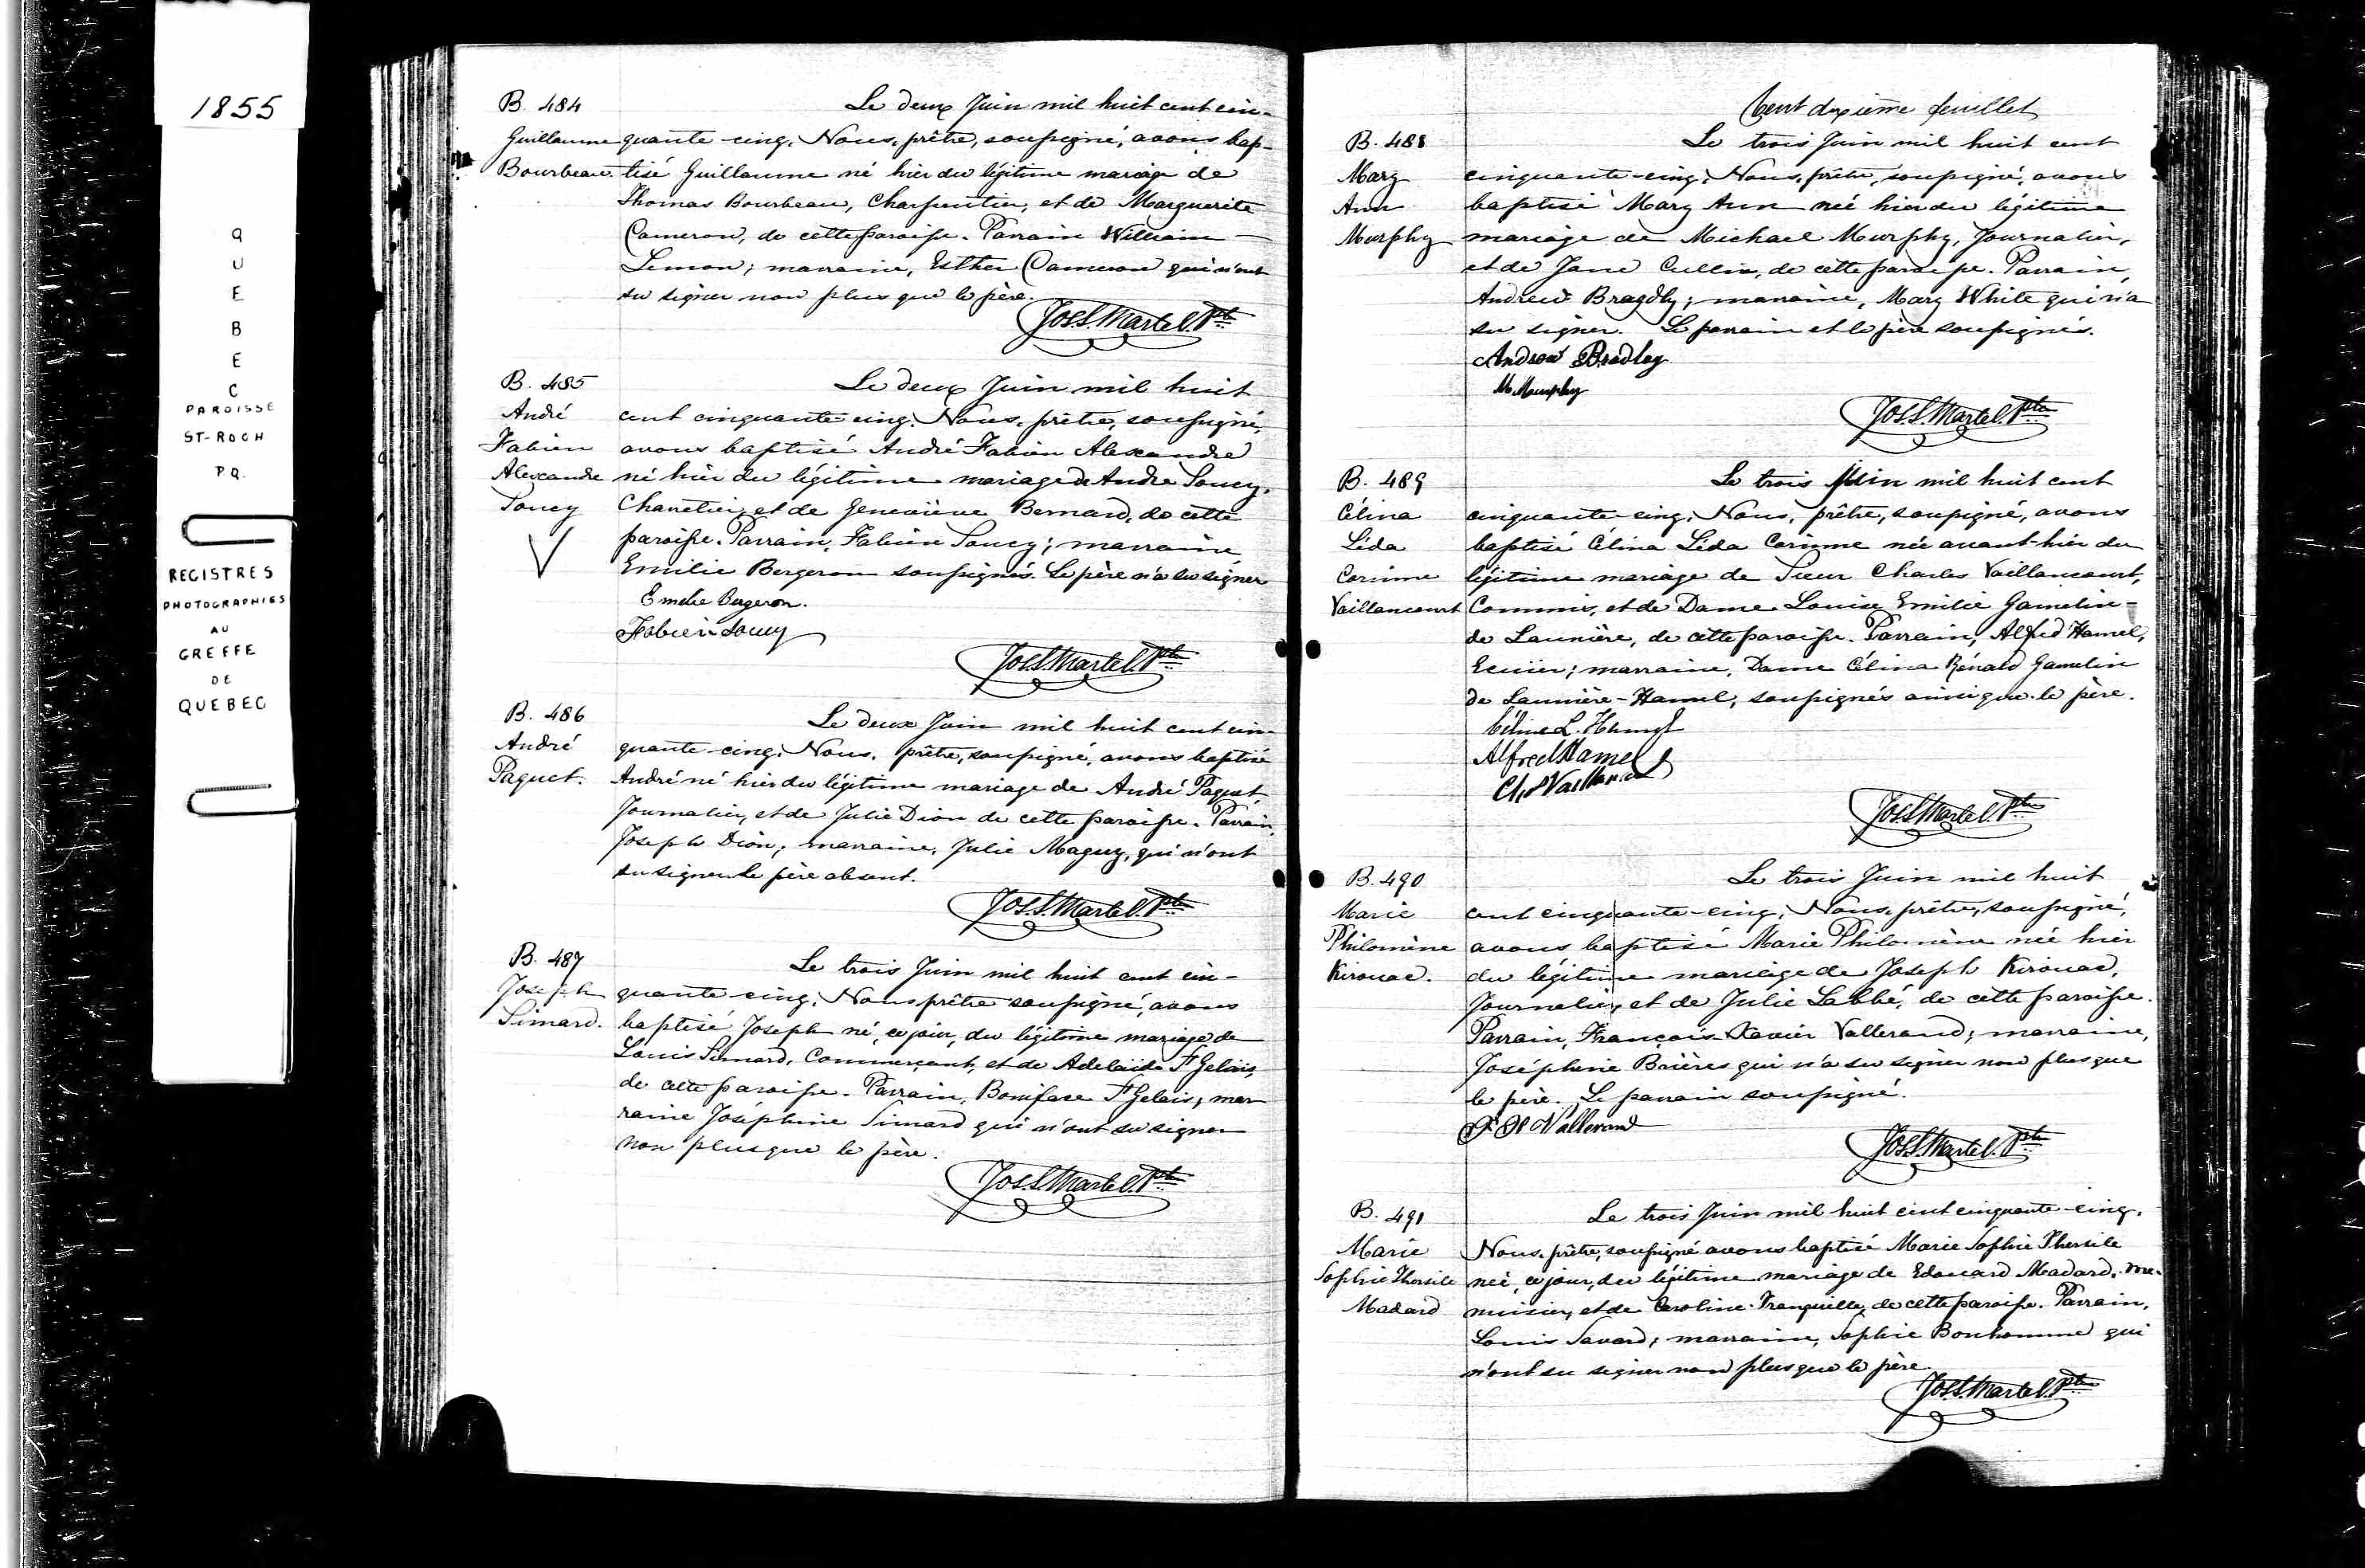 1855
QUEBEC
PAROISSE
ST-ROCH
PQ.
REGISTRES
PHOTOGRAPHIES
AU
GREFFE
DE
QUEBEC
B. 484
Guillaume
Bourbeau
Le deux Juin mil huit cent cin-
quante-cinq, Nous, prêtre, soussigné, avons bap-
tisé Guillaume né hier du légitime mariage de
Thomas Bourbeau, Charpentier, et de Marguerite
Cameron, de cette paroisse. Parrain William
Lemon; marraine, Esther Cameron qui n'ont
su signer non plus que le père.
Jos. S. Martel. Ptre
B. 485
André
Fabien
Alexandre
Soucy
Le deux Juin mil huit
cent cinquante-cinq, Nous, prêtre, soussigné,
avons baptisé André Fabien Alexandre
né hier du légitime mariage de André Soucy,
Charretier, et de Geneviève Bernard, de cette
paroisse. Parrain, Fabien Soucy; marraine
Emilie Bergeron soussignés. Le père n'a su signer
Emelie Bergeron.
Fabien Soucy
Jos. S. Martel. Ptre
B. 486
André
Paquet.
Le deux Juin mil huit cent cin-
quante-cinq, Nous, prêtre, soussigné, avons baptisé
André né hier du légitime mariage de André Paquet
Journalier, et de Julie Dion de cette paroisse. Parrain,
Joseph Dion; marraine, Julie Maguy, qui n'ont
su signer. Le père absent.
Jos. S. Martel. Ptre
B. 487
Joseph
Simard.
Le trois Juin mil huit cent cin-
quante-cinq, Nous prêtre soussigné, avons
baptisé Joseph né, ce jour, du légitime mariage de
Louis Simard, Commerçant, et de Adelaide St Gelais,
de cette paroisse. Parrain, Boniface St Gelais; mar-
raine Joséphine Simard qui n'ont su signer
non plus que le père.
Jos. S. Martel. Ptre
Cent dixième feuillet
B. 488
Mary
Ann
Murphy
Le trois Juin mil huit cent
cinquante-cinq, Nous, prêtre, soussigné, avons
baptisé Mary Ann née hier du légitime
mariage de Michael Murphy, Journalier,
et de Jane Cullin, de cette paroisse. Parrain,
Andrew Bragdly; marraine, Mary White qui n'a
su signer. Le parrain et le père soussignés.
Andrew Bradley
M. Murphy
Jos. S. Martel. Ptre
B. 489
Célina
Léda
Corinne
Vaillancourt
Le trois Juin mil huit cent
cinquante-cinq, Nous, prêtre, soussigné, avons
baptisé Célina Léda Corinne née avant-hier du
légitime mariage de Sieur Charles Vaillancourt,
Commis, et de Dame Louise Emilie Gamelin-
de Launière, de cette paroisse. Parrain, Alfred Hamel,
Ecuier; marraine, Dame Célina Rénald Gamelin
de Launière-Hamel, soussignés ainsi que le père.
Célina L. Hamel
Alfred Hamel
Jos. S. Martel. Ptre
B. 490
Marie
Philomène
Kirouac.
Le trois Juin mil huit
cent cinquante-cinq, Nous, prêtre, soussigné,
avons baptisé Marie Philomène née hier
du légitime mariage de Joseph Kirouac,
Journalier, et de Julie Labbé, de cette paroisse.
Parrain, François-Xavier Vallerand; marraine,
Joséphine Brières qui n'a su signer non plus que
le père. Le parrain soussigné.
F X Vallerand
Jos. S. Martel. Ptre
B. 491
Marie
Sophie Thersile
Madard
Le trois Juin mil huit cent cinquante-cinq,
Nous, prêtre, soussigné avons baptisé Marie Sophie Thersile
née, ce jour, du légitime mariage de Edouard Madard, me-
nuisier, et de Caroline Tranquille, de cette paroisse. Parrain,
Louis Savard; marraine, Sophie Bonhomme qui
n'ont su signer non plus que le père.
Jos. S. Martel. Ptre